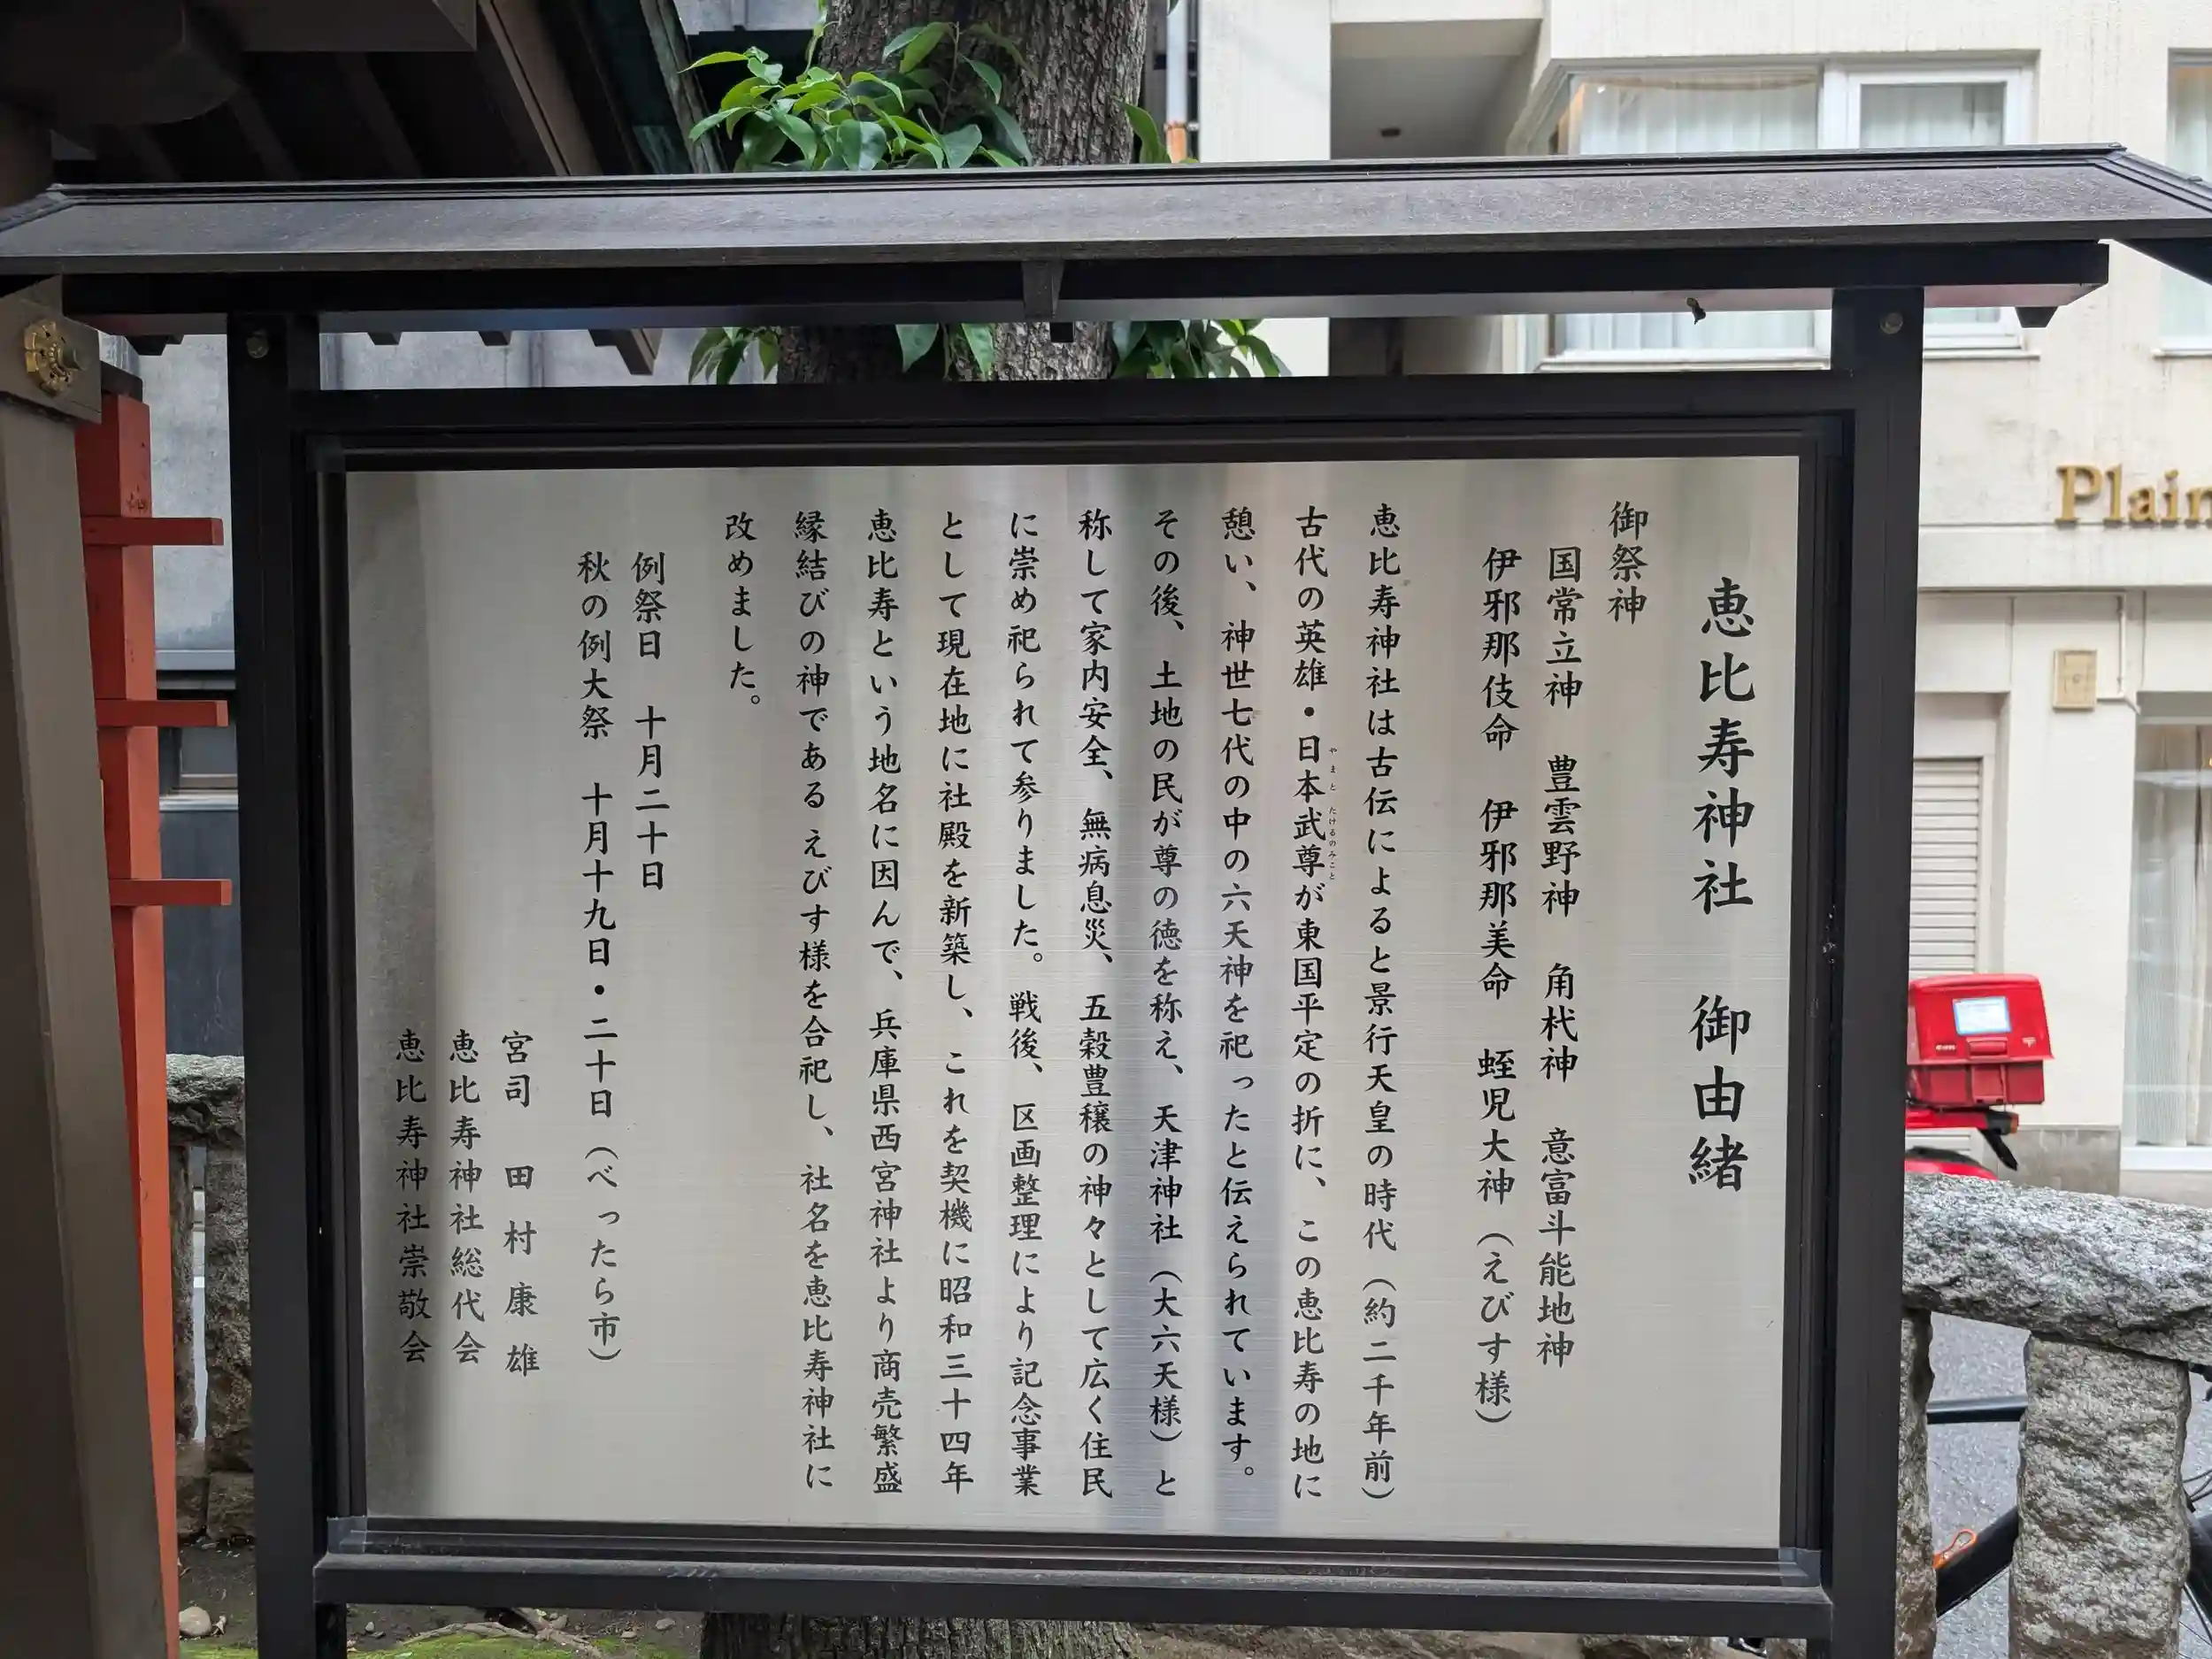 恵比寿神社 御由緒
御祭神
国常立神 豊雲野神 角杙神 意富斗能地神
伊邪那伎命 伊邪那美命 蛭児大神（えびす様）
恵比寿神社は古伝によると景行天皇の時代（約二千年前）
古代の英雄・日本武尊が東国平定の折に、この恵比寿の地に
やまと たけるのみこと
憩い、神世七代の中の六天神を祀ったと伝えられています。
その後、土地の民が尊の徳を称え、天津神社（大六天様）と
称して家内安全、無病息災、五穀豊穣の神々として広く住民
に崇め祀られて参りました。戦後、区画整理により記念事業
として現在地に社殿を新築し、これを契機に昭和三十四年
恵比寿という地名に因んで、兵庫県西宮神社より商売繁盛
縁結びの神である えびす様を合祀し、社名を恵比寿神社に
改めました。
例祭日 十月二十日
秋の例大祭 十月十九日・二十日（べったら市）
宮司 田村康雄
恵比寿神社総代会
恵比寿神社崇敬会
Plain